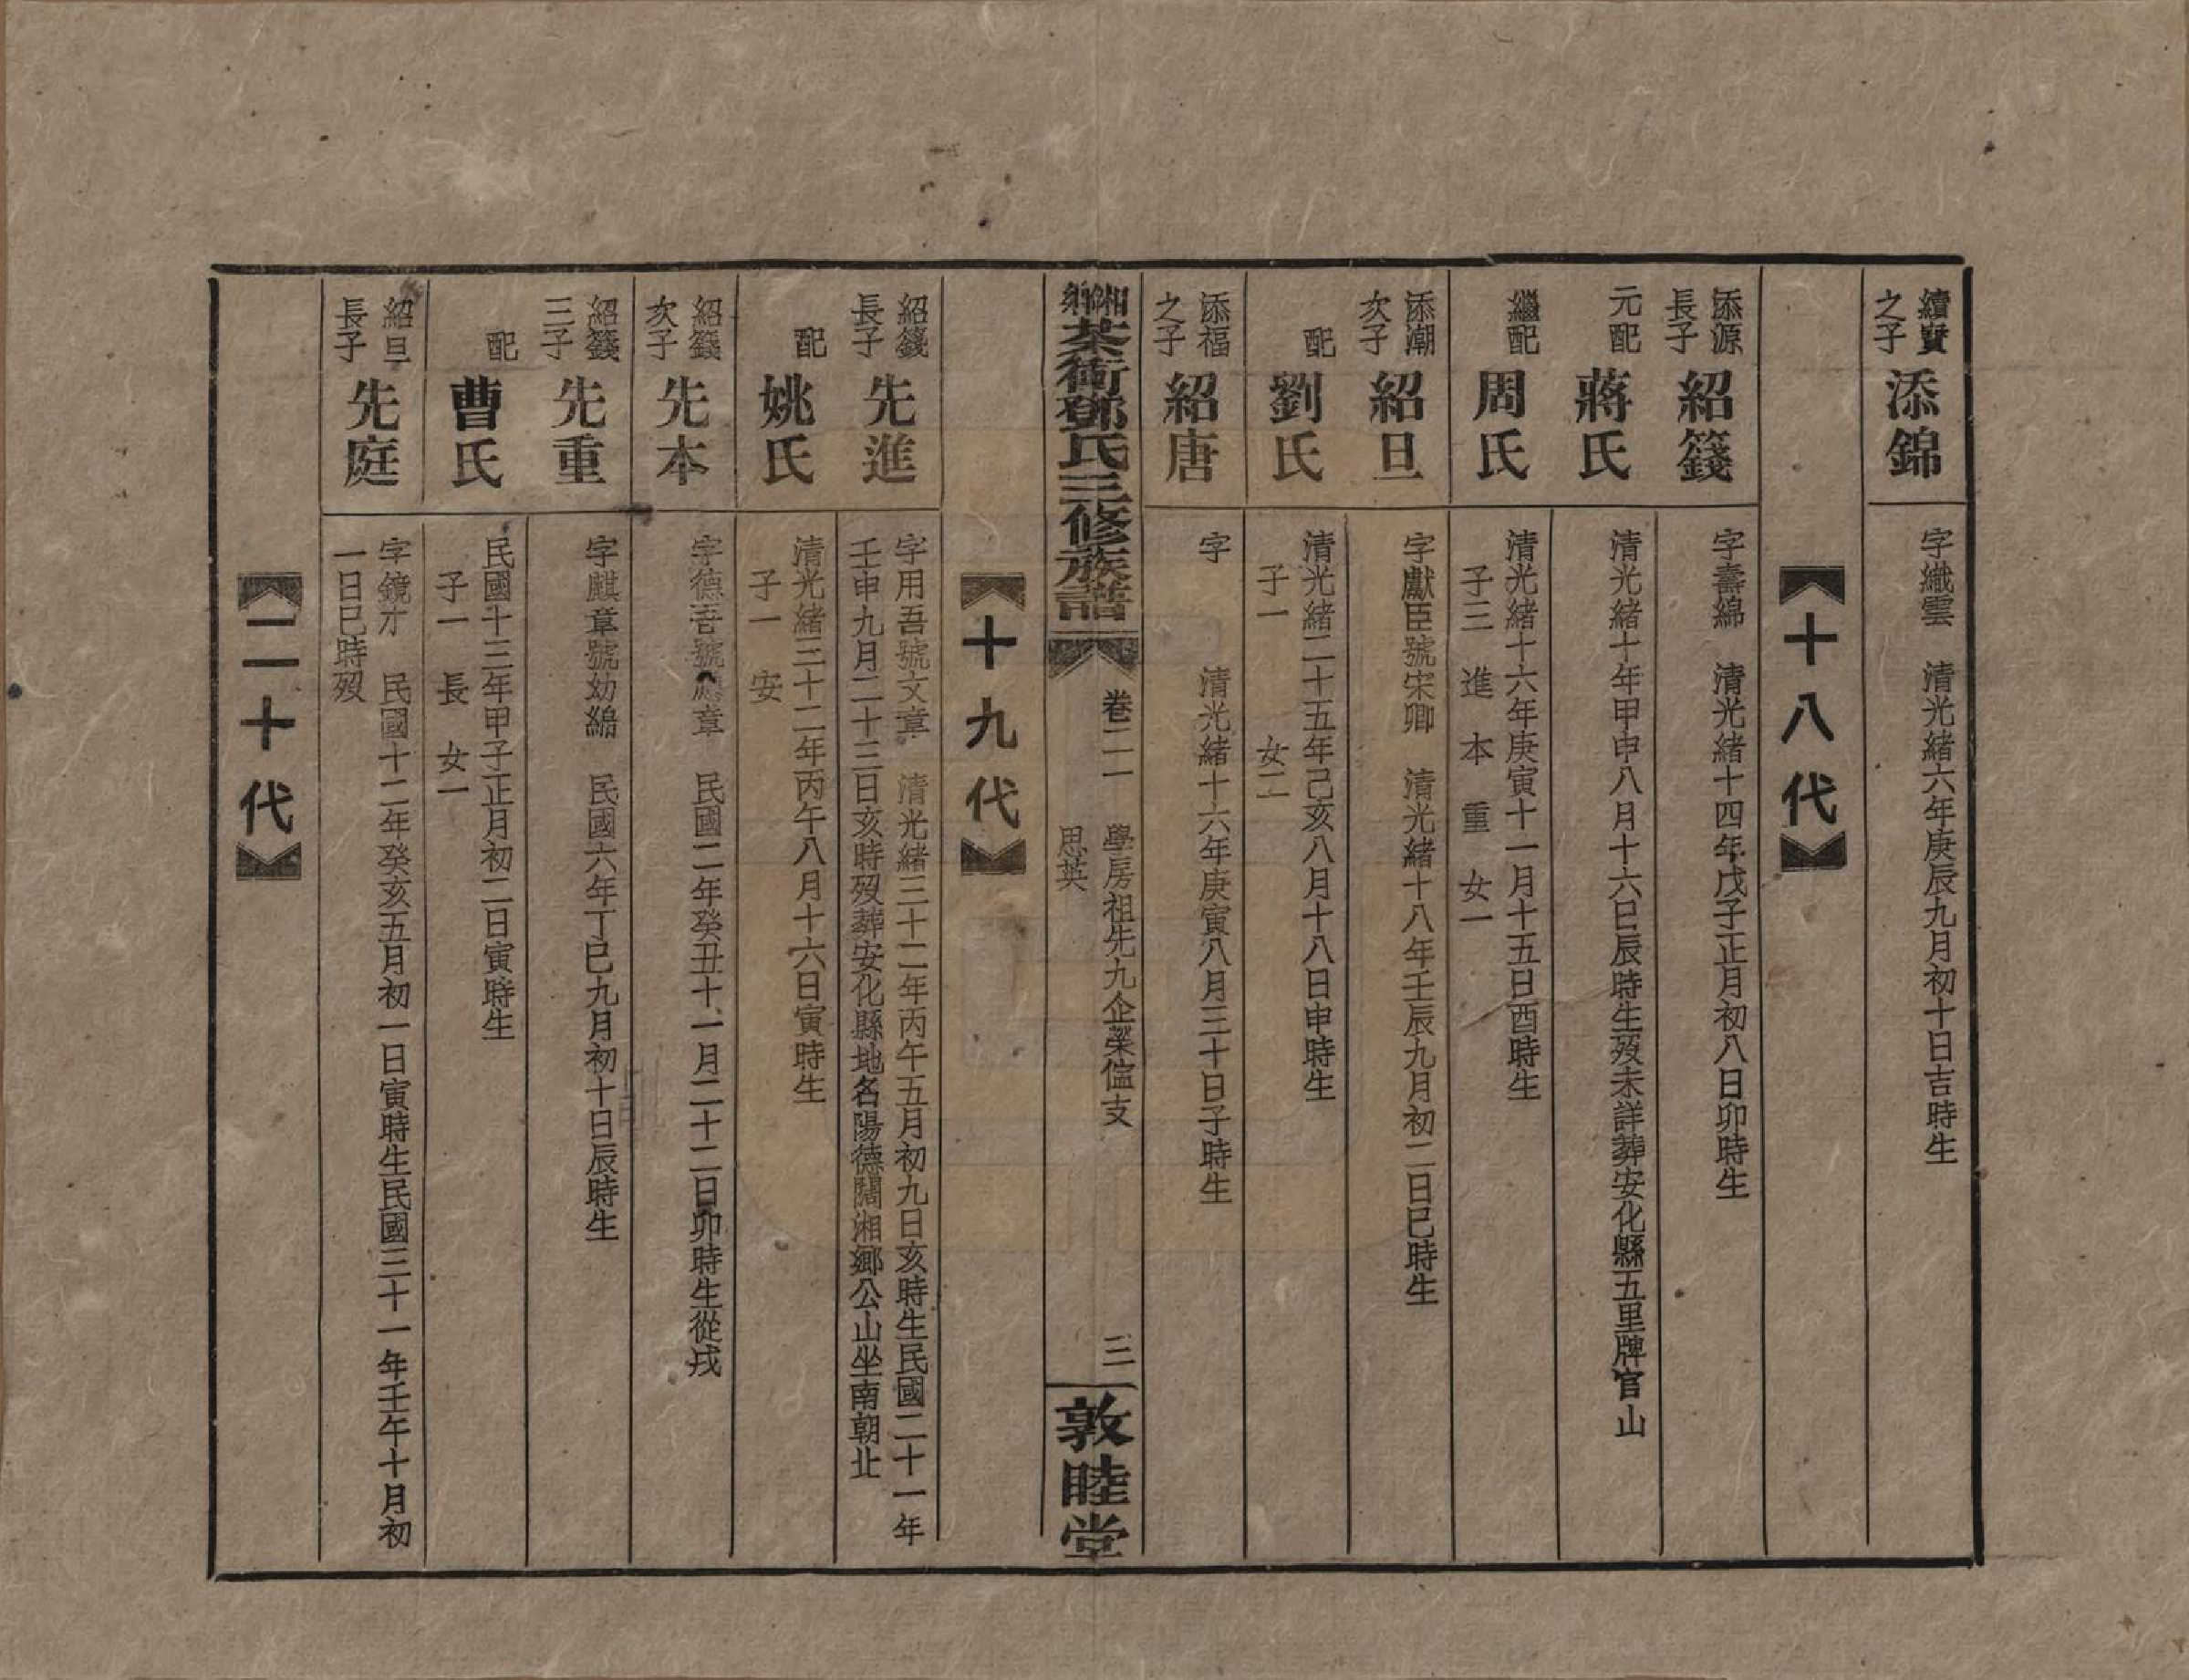 續賢之子
添錦
字織雲　清光緒六年庚辰九月初十日吉時生
十八代
添源長子
紹籛
字壽綿　清光緒十四年戊子正月初八日卯時生
元配
蔣氏
清光緒十年甲申八月十六日辰時生歿未詳葬安化縣五里牌官山
繼配
周氏
清光緒十六年庚寅十一月十五日酉時生
子三　進　本　重　女一
添潮次子
紹旦
字獻臣號宋卿　清光緒十八年壬辰九月初二日巳時生
配
劉氏
清光緒二十五年己亥八月十八日申時生
子一　女二
添福之子
紹唐
字　清光緒十六年庚寅八月三十日子時生
湘鄉茶衝鄧氏三修族譜
卷二一　學房祖先九企榮㑥支
思英
三
敦睦堂
十九代
紹籛長子
先進
字用吾號文章　清光緒三十二年丙午五月初九日亥時生民國二十一年
壬申九月二十三日亥時歿葬安化縣地名陽德闊湘鄉公山坐南朝北
配
姚氏
清光緒三十二年丙午八月十六日寅時生
子一　安
紹籛次子
先本
字德吾號章　民國二年癸丑十一月二十二日卯時生從戎
紹籛三子
先重
字麒章號幼綿　民國六年丁巳九月初十日辰時生
配
曹氏
民國十三年甲子正月初二日寅時生
子一　長　女一
紹旦長子
先庭
字鏡才　民國十二年癸亥五月初一日寅時生民國三十一年壬午十月初
一日巳時歿
二十代